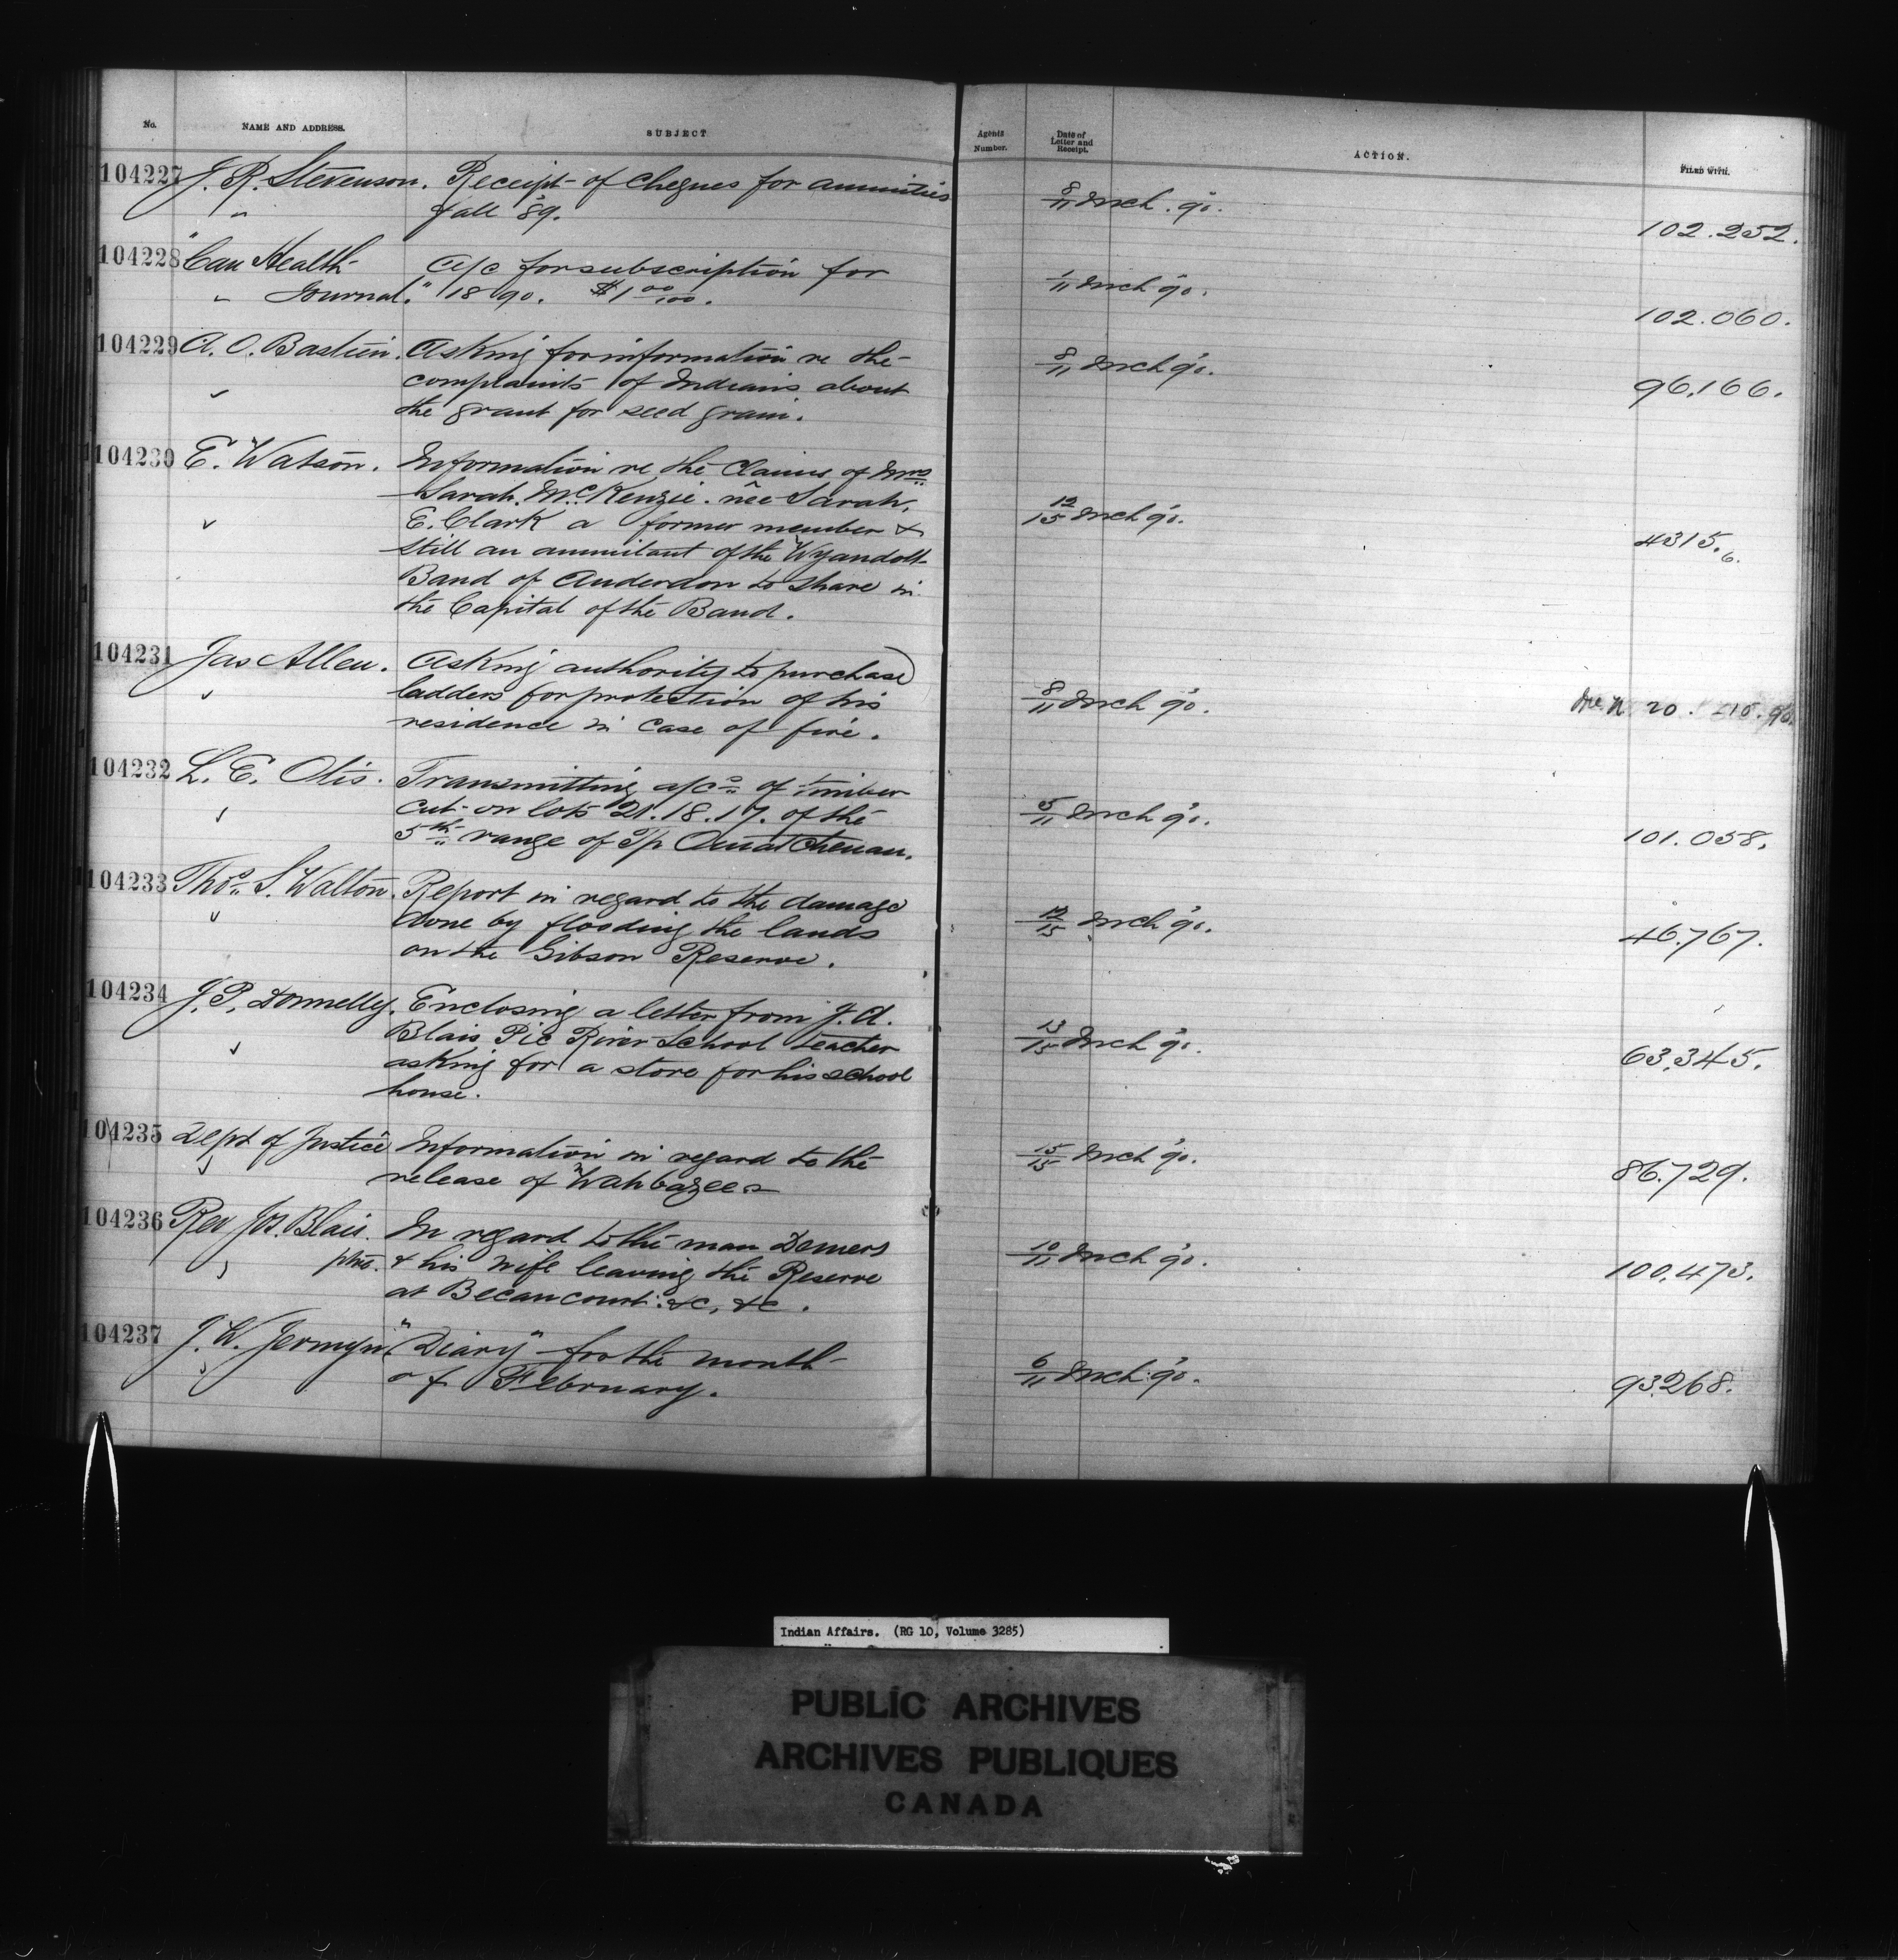 No. NAME AND ADDRESS. SUBJECT Agents Number. Date of Letter and Receipt. ACTION. FILED WITH.
104227 J. R. Stevenson. Receipt of cheques for annuities 8/11 Mch. 90. 102.252.
fall 89.
104228 "Can Health A/c for subscription for 1/11 Mch 90. 102.060.
Journal." 1890. $1 00/100.
104229 A. O. Bastien. Asking for information re the 8/11 Mch 90. 96,166.
complaints of Indians about
the grant for seed grain.
104230 E. Watson. Information re the claims of Mrs
Sarah McKenzie. née Sarah,
E. Clark a former member & 12/15 Mch 90. 4315.6.
still an annuitant of the Wyandott
Band of Anderdon to share in
the Capital of the Band.
104231 Jas Allen. Asking authority to purchase
ladders for protection of his 8/11 Mch 90.
residence in case of fire.
104232 L. E. Otis. Transmitting a/cs of timber
cut on lots 21.18.17. of the 5/11 Mch 90. 101.058.
5th range of T/p Ouiatchouan.
104233 Thos. S. Walton. Report in regard to the damage
done by flooding the lands 12/15 Mch 90. 46.767.
on the Gibson Reserve.
104234 J. P. Donnelly. Enclosing a letter from J. A.
Blais Pic River School teacher 13/15 Mch 90. 63,345.
asking for a stove for his school
house.
104235 Dept of Justice Information in regard to the 15/15 Mch 90. 86.729.
release of Wahbazee
104236 Rev Jos. Blais. In regard to the man Demers
ptre. & his wife leaving the Reserve 10/11 Mch 90. 100,473.
at Becancourt &c, &c.
104237 J. W. Jermyn "Diary" for the month 6/11 Mch 90. 93.268.
of February.
Indian Affairs. (RG 10, Volume 3285)
PUBLIC ARCHIVES
ARCHIVES PUBLIQUES
CANADA